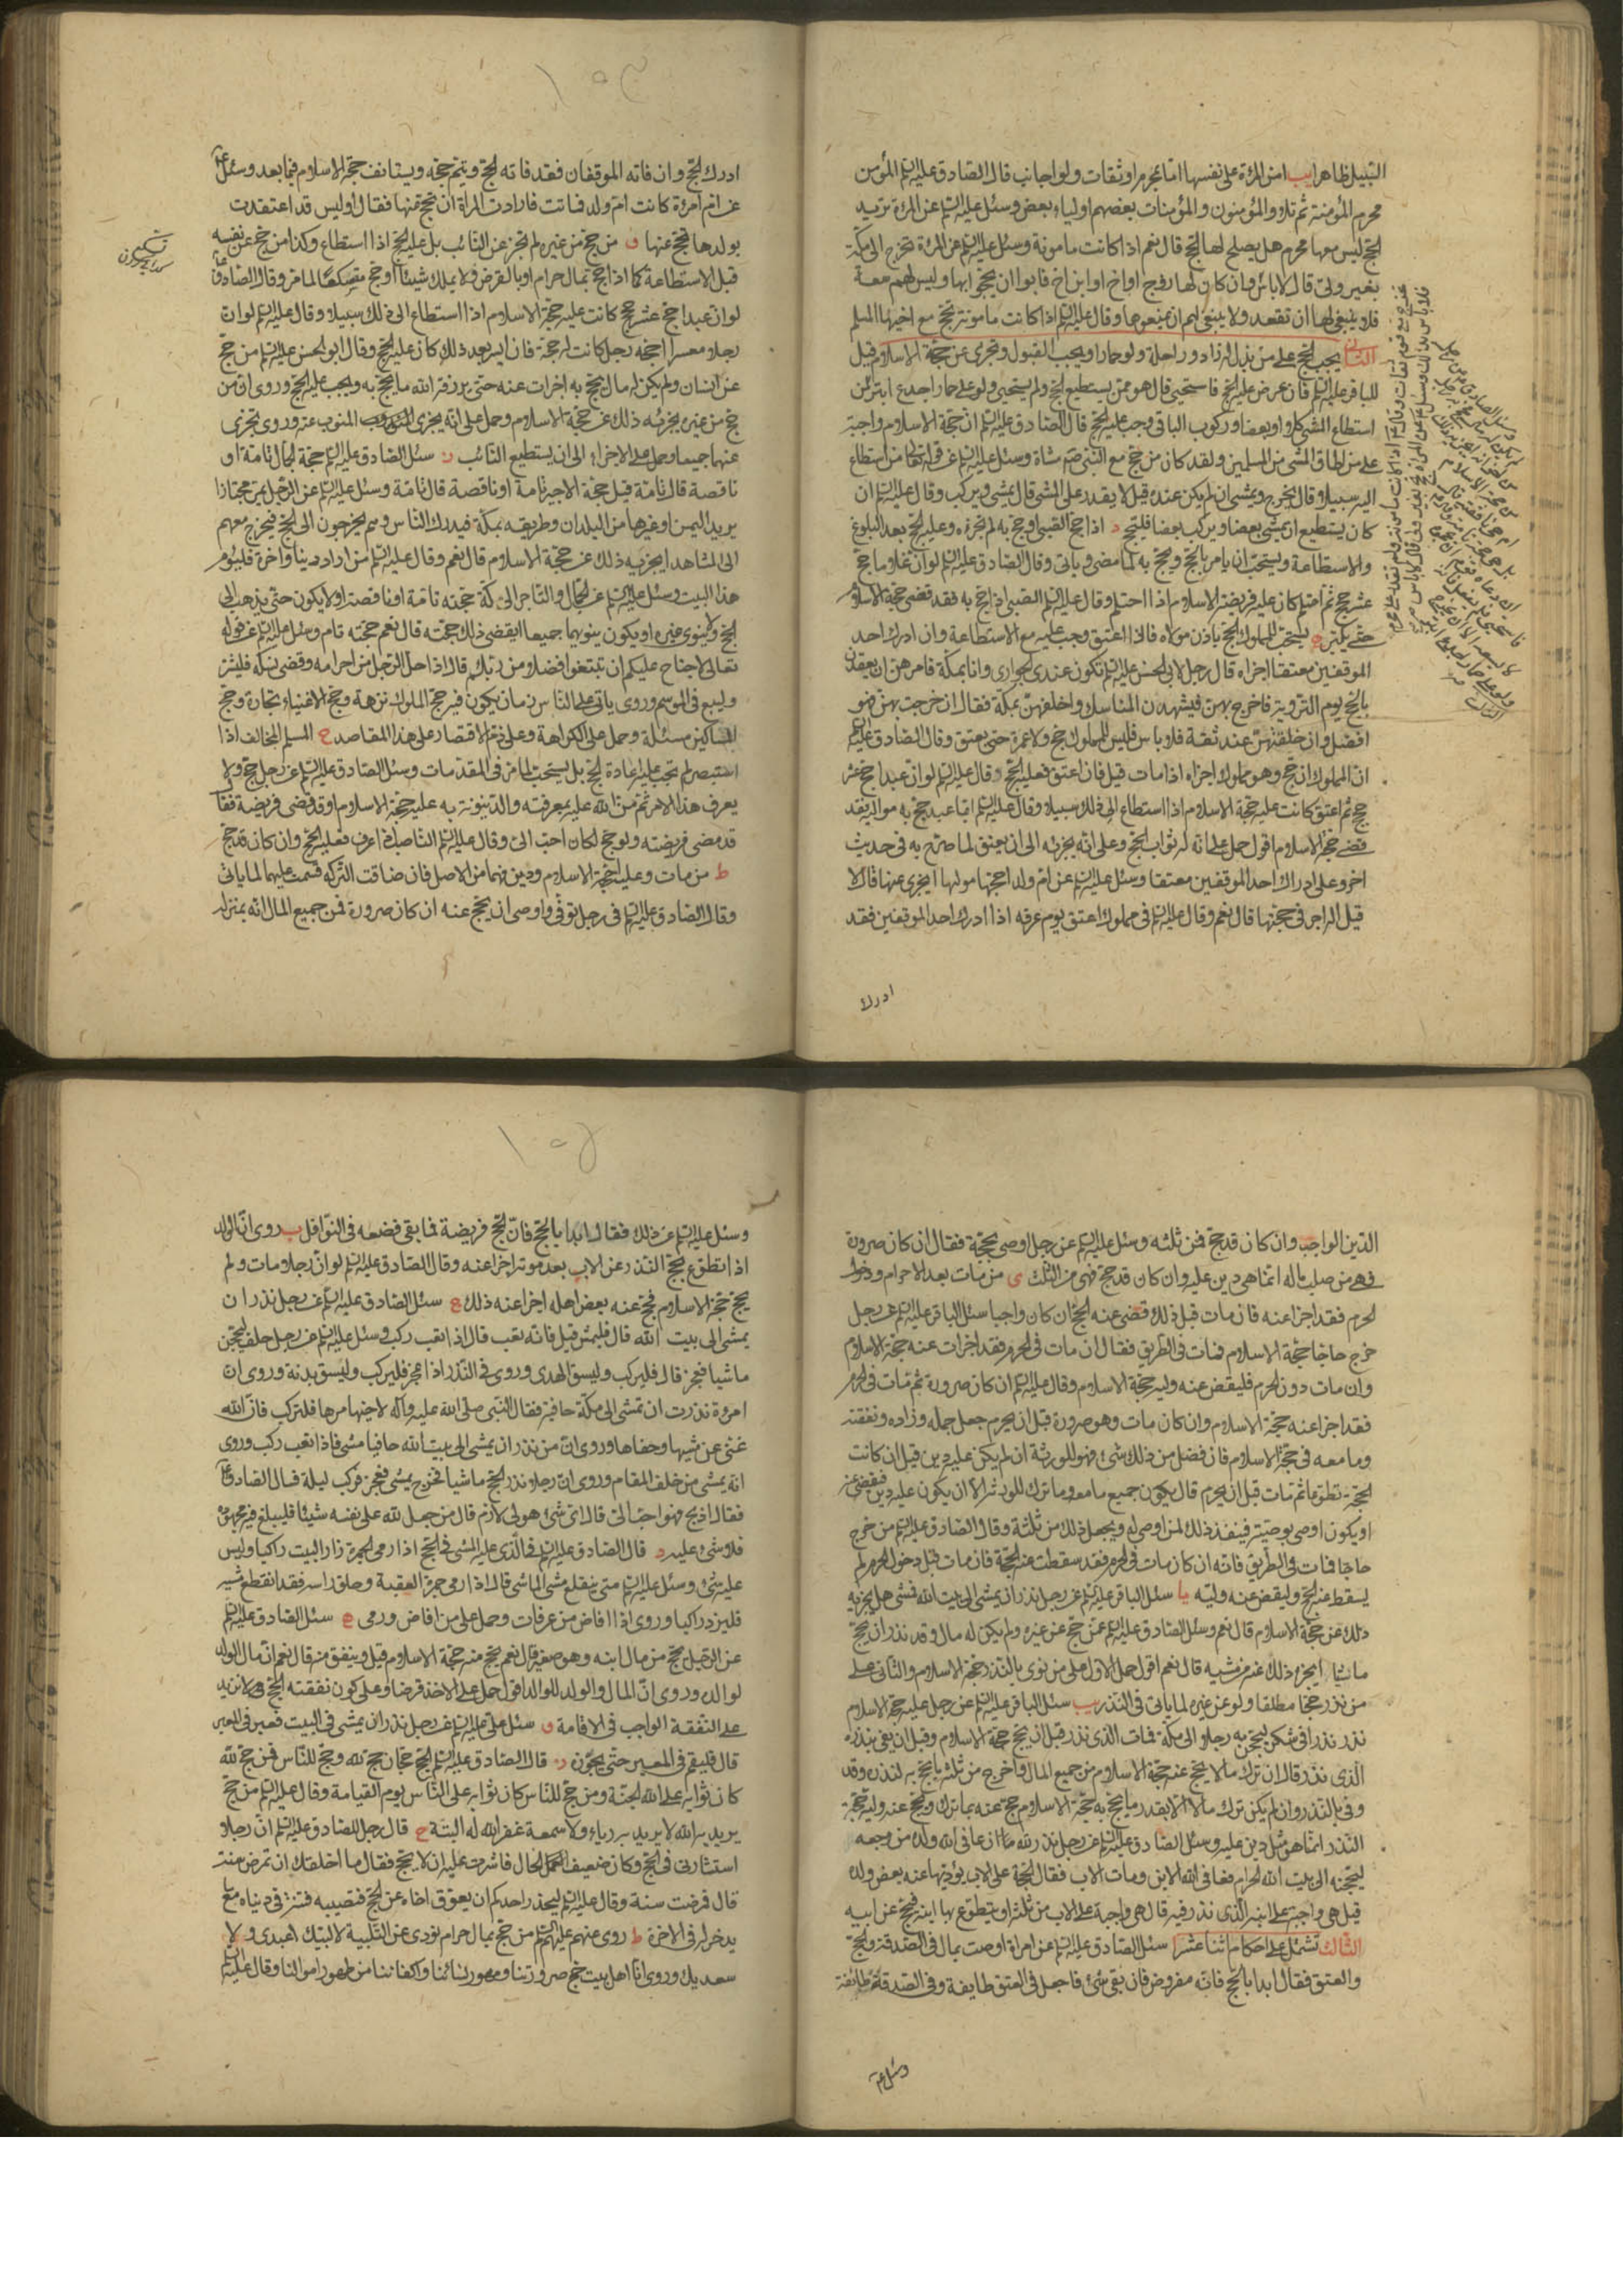 السبيل ظاهرا يب امن المرءة على نفسها اما بمحرم او ثقات ولو اجانب قال الصادق عليه السلم المؤمن
محرم المؤمنة ثم تلا والمؤمنون والمؤمنات بعضهم اولياء بعض وسئل عليه السلم عن المرءة تريد
الحج ليس معها محرم هل يصلح لها الحج قال نعم اذا كانت مامونة وسئل عليه السلم عن المرءة تخرج الى مكة
بغير ولى قال لا باس وان كان لها زوج او اخ او ابن اخ فابوا ان يحجوا بها وليس لهم سعة
فلا ينبغى لها ان تقعد ولا ينبغى لهم ان يمنعوها وقال عليه السلم اذا كانت مامونة تحج مع اخيها المسلم
الثانى يجب الحج على من بذل له زاد وراحلة ولو حمارا ويجب القبول ويجزى عن حجة الاسلام قيل
للباقر عليه السلم فان عرض عليه الحج فاستحيى قال هو ممن يستطيع الحج ولم يستحيى ولو على حمار اجدع ابتر فان
استطاع المشى كلا او بعضا وركوب الباقى وجب عليه الحج قال الصادق عليه السلم ان حجة الاسلام واجبة
على من اطاق المشى من المسلمين ولقد كان من حج مع النبى ص مشاة وسئل عليه السلم عن قوله تعالى من استطاع
اليه سبيلا قال يخرج ويمشى ان لم يكن عنده قيل لا يقدر على المشى قال يمشى ويركب وقال عليه السلم ان
كان يستطيع ان يمشى بعضا ويركب بعضا فليحج د اذا حج الصبى او حج به لم يجزه وعليه الحج بعد البلوغ
والاستطاعة ويستحب ان يامر بالحج ويحج به لما مضى وياتى وقال الصادق عليه السلم لو ان غلاما حج
عشر حجج ثم احتلم كان عليه فريضة الاسلام اذا احتلم وقال عليه السلم الصبى اذا حج به فقد قضى حجة الاسلام
حتى يكبر ه يستحب للمملوك الحج باذن مولاه فاذا اعتق وجب عليه مع الاستطاعة وان ادرك احد
الموقفين معتقا اجزاه قال رجل لابى الحسن عليه السلم تكون عندى الجوارى وانا بمكة فامرهن ان يعقدن
بالحج يوم التروية فاخرج بهن فيشهدن المناسك او اخلفهن بمكة فقال ان خرجت بهن فهو
افضل وان خلفتهن عند ثقة فلا باس فليس للمملوك حج ولا عمرة حتى يعتق وقال الصادق عليه السلم
ان المملوك ان حج وهو مملوك اجزاه اذا مات قبل فان اعتق فعليه الحج وقال عليه السلم لو ان عبدا حج عشر
حجج ثم اعتق كانت عليه حجة الاسلام اذا استطاع الى ذلك سبيلا وقال عليه السلم ايما عبد حج به مواليه فقد
قضى حجة الاسلام اقول حمل على انه له ثواب الحج وعلى انه يجزئه الى ان يعتق لما صرح به فى حديث
اخر وعلى ادراك احد الموقفين معتقا وسئل عليه السلم عن ام ولد احجها مولها ايجزى عنها قال لا
قيل اله اجر فى حجتها قال نعم وقال عليه السلم فى مملوك اعتق يوم عرفة اذا ادرك احد الموقفين فقد
ادرك
ادرك الحج وان فاته الموقفان فقد فاته الحج ويتم حجه ويستانف حجة الاسلام فيما بعد وسئل
عن ام امرءة كانت ام ولد فماتت فارادت المراة ان تحج عنها فقال أوليس قد اعتقدت
بولدها تحج عنها و من حج من غيره لم تجز عن النائب بل عليه الحج اذا استطاع وكذا من حج عن نفسه
قبل الاستطاعة كما اذا حج بمال حرام او بالقرض ولا يملك شيئا او حج متسكعا لما مر وقال الصادق
لو ان عبدا حج عشر حجج كانت عليه حجة الاسلام اذا استطاع الى ذلك سبيلا وقال عليه السلم لو ان
رجلا معسرا احجه رجل كانت له حجة فان ايسر بعد ذلك كان عليه الحج وقال ابو الحسن عليه السلم من حج
عن انسان ولم يكن له مال يحج به اجزات عنه حتى يرزقه الله ما يحج به ويجب عليه الحج وروى ان من
حج من غيره يجزئه ذلك عن حجة الاسلام وحمل على انه يجزى المنوب عنه وروى تجزى
عنهما جميعا وحمل على الاجزاء الى ان يستطيع النائب ز سئل الصادق عليه السلم حجة الجمال تامة او
ناقصة قال تامة قيل حجة الاجير تامة او ناقصة قال تامة وسئل عليه السلم عن الرجل يمر مجتازا
يريد اليمن او غيرها من البلدان وطريقه بمكة فيدرك الناس وهم يخرجون الى الحج فيخرج معهم
الى المشاهد ايجزيه ذلك عن حجة الاسلام قال نعم وقال عليه السلم من اراد دينا واخرة فليؤم
هذا البيت وسئل عليه السلم عن الجمال والتاجر الى مكة حجته تامة او ناقصة او لا يكون حتى يذهب الى
الحج ولا ينوى غيره او يكون ينويهما جميعا ايقضى ذلك حجته قال نعم حجته تام وسئل عليه السلم عن قوله
تعالى لا جناح عليكم ان تبتغوا فضلا من ربك قال اذا احل الرجل من احرامه وقضى نسكه فليشتر
وليبع فى الموسم وروى ياتى على الناس زمان يكون فيه حج الملوك نزهة وحج الاغنياء تجارة وحج
المساكين مسئلة وحمل على الكراهة وعلى ذم الاقتصار على هذا المقاصد ح المسلم المخالف اذا
استبصر لم تجب عليه اعادة الحج بل يستحب لما مر فى المقدمات وسئل الصادق عليه السلم عن رجل حج ولا
يعرف هذا الامر ثم من الله عليه بمعرفته والدينونة به عليه حجة الاسلام او قد قضى فريضة فقال
قد مضى فريضته ولو حج لكان احب الى وقال عليه السلم الناصب اذا عرف فعليه الحج وان كان قد حج
ط من مات وعليه حجة الاسلام ودين فهما من الاصل فان ضاقت التركة قسمت عليهما لما ياتى
وقال الصادق عليه السلم فى رجل توفى واوصى ان يحج عنه ان كان صرورة فمن جميع المال انه بمنزلة
الدين الواجب وان كان قد حج فمن ثلثه وسئل عليه السلم عن رجل اوصى بحجة فقال ان كان صرورة
فهى من صلب ماله انما هى دين عليه وان كان قد حج فهى من الثلث ى من مات بعد الاحرام ودخول
الحرم فقد اجزا عنه فان مات قبل ذلك قضى عنه الحج ان كان واجبا سئل الباقر عليه السلم عن رجل
خرج حاجا حجة الاسلام فمات فى الطريق فقال ان مات فى الحرم فقد اجزات عنه حجة الاسلام
وان مات دون الحرم فليقض عنه وليه حجة الاسلام وقال عليه السلم ان كان صرورة ثم مات فى الحرم
فقد اجزا عنه حجة الاسلام وان كان مات وهو صرورة قبل ان يحرم جعل جمله وزاده ونفقته
وما معه فى حجة الاسلام فان فضل من ذلك شئ فهو للورثة ان لم يكن عليه دين قيل ان كانت
الحجة تطوعا ثم مات قبل ان يحرم قال يكون جميع ما معه وما ترك للورثة الا ان يكون عليه دين فيقضى عنه
او يكون اوصى بوصية فينفذ ذلك لمن اوصى له ويجعل ذلك من ثلثه وقال الصادق عليه السلم من خرج
حاجا فمات فى الطريق فانه ان كان مات فى الحرم فقد سقطت عنه الحجة فان مات قبل دخول الحرم لم
يسقط عنه الحج وليقض عنه وليه يا سئل الباقر عليه السلم عن رجل نذر ان يمشى الى بيت الله فمشى هل يجزيه
ذلك عن حجة الاسلام قال نعم وسئل الصادق عليه السلم عمن حج عن غيره ولم يكن له مال وقد نذر ان يحج
ماشيا ايجزى ذلك عنه من مشيه قال نعم اقول حمل الاول على من نوى بالنذر حجة الاسلام والثانى على
من نذر حجا مطلقا ولو عن غيره لما ياتى فى النذر يب سئل الباقر عليه السلم عن رجل عليه حجة الاسلام
نذر نذرا فى شكر ليحجن به رجلا الى مكة فمات الذى نذر قبل ان يحج حجة الاسلام وقبل ان يفى بنذره
الذى نذر قال ان ترك مالا يحج عنه حجة الاسلام من جميع المال واخرج من ثلثه ما يحج به لنذره وقد
وفى بالنذر وان لم يكن ترك مالا الا بقدر ما يحج به حجة الاسلام حج عنه بما ترك ويحج عنه وليه حجة
النذر انما هو مثل دين عليه وسئل الصادق عليه السلم عن رجل نذر لله ان عافى الله ولده من وجعه
ليحجنه الى بيت الله الحرام فعافى الله الابن ومات الاب فقال الحجة على الاب يؤديها عنه بعض ولده
قيل هى واجبة على ابنه الذى نذر فيه قال هى واجبة على الاب من ثلثه او يتطوع بها ابنه فيحج عن ابيه
الثالث تشتمل على احكام اثنا عشر ا سئل الصادق عليه السلم عن امراة اوصت بمال فى الصدقة والحج
والعتق فقال ابدا بالحج فانه مفروض فان بقى شئ فاجعل فى العتق طايفة وفى الصدقة طائفة
وسئل عليه
وسئل عليه السلم عن ذلك فقال ابدا بالحج فان الحج فريضة فما بقى فضعه فى النوافل ب روى ان الولد
اذا تطوع بحجة النذر عن الاب بعد موته اجزا عنه وقال الصادق عليه السلم لو ان رجلا مات ولم
يحج حجة الاسلام فحج عنه بعض اهله اجزا عنه ذلك ج سئل الصادق عليه السلم عن رجل نذر ان
يمشى الى بيت الله قال فليمش قيل فانه تعب قال اذا تعب ركب وسئل عليه السلم عن رجل حلف ليحجن
ماشيا فعجز قال فليركب وليسق الهدى وروى فى النذر اذا عجز فليركب وليسق بدنة وروى ان
امرءة نذرت ان تمشى الى مكة حافية فقال النبى صلى الله عليه وآله لاخيها مرها فلتركب فان الله
غنى عن مشيها وحفاها وروى ان من نذر ان يمشى الى بيت الله حافيا مشى فاذا تعب ركب وروى
انه يمشى من خلف المقام وروى ان رجلا نذر الحج ماشيا فخرج يمشى فعجز فركب ليلة فسال الصادق
فقال اذبح فهو احب الى قال اى شئ هو لى لازم قال من جعل لله على نفسه شيئا فليبلغ فيه مجهوده
فلا شئ عليه د قال الصادق عليه السلم فى الذى عليه المشى فى الحج اذا رمى الجمرة زار البيت راكبا وليس
عليه شئ وسئل عليه السلم متى ينقطع مشى الماشى قال اذا رمى جمرة العقبة وحلق راسه فقد انقطع مشيه
فليزر راكبا وروى اذا افاض من عرفات وحمل على من افاض ورمى ه سئل الصادق عليه السلم
عن الرجل يحج من مال ابنه وهو صغير قال نعم يحج منه حجة الاسلام قيل وينفق منه قال نعم ان مال الولد
لوالده وروى ان المال والولد للوالد اقول حمل على الاخذ قرضا وعلى كون نفقته الحج لا تزيد
على النفقة الواجب فى الاقامة و سئل على عليه السلم عن رجل نذر ان يمشى الى البيت فمر فى المعبر
قال فليقم فى المعبر حتى يجوز ز قال الصادق عليه السلم الحج حجان حج لله وحج للناس فمن حج لله
كان ثوابه على الله الجنة ومن حج للناس كان ثوابه على الناس يوم القيامة وقال عليه السلم من حج
يريد به الله لا يريد به رياء ولا سمعة غفر الله له البتة ح قال رجل للصادق عليه السلم ان رجلا
استشارنى فى الحج وكان ضعيف الحال فاشرت عليه ان لا يحج فقال ما اخلقك ان تمرض سنة
قال فمرضت سنة وقال عليه السلم ليحذر احدكم ان يعوق اخاه عن الحج فتصيبه فتنة فى دنياه مع ما
يدخر له فى الاخرة ط روى عنهم عليهم السلم من حج بمال حرام نودى عن التلبية لا لبيك اعبدى ولا
سعديك وروى انا اهل بيت حج صرورتنا ومهور نسائنا واكفاننا من طهور اموالنا وقال عليه السلم